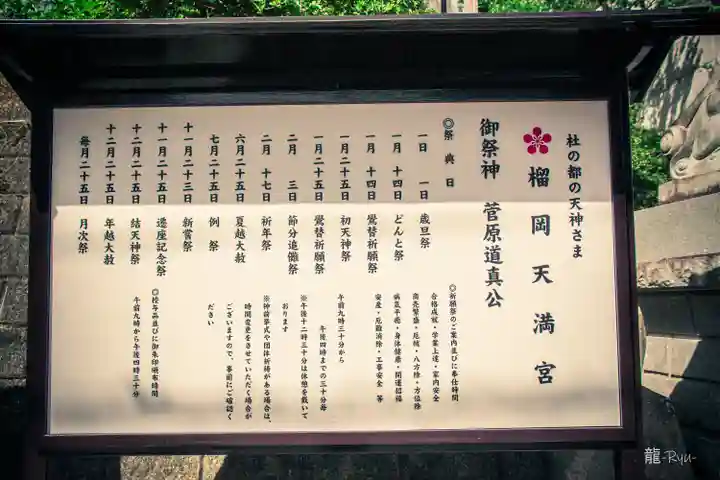 杜の都の天神さま
榴岡天満宮
御祭神 菅原道真公
◎祭典日
一月 一日 歳旦祭
一月 十四日 どんと祭
一月 十四日 鷽替祈願祭
一月二十五日 初天神祭
一月二十五日 鷽替祈願祭
二月 三日 節分追儺祭
二月 十七日 祈年祭
六月二十五日 夏越大祓
七月二十五日 例祭
十一月二十三日 新嘗祭
十一月二十五日 遷座記念祭
十二月二十五日 結天神祭
十二月二十五日 年越大祓
毎月二十五日 月次祭
◎祈願祭のご案内並びに奉仕時間
合格成就・学業上達・家内安全
商売繁盛・厄祓・八方除・方位除
病気平癒・身体健康・開運招福
安産・厄難消除・工事安全 等
午前九時三十分から
午後四時までの三十分毎
※午後十二時三十分は休憩を戴いて
おります
※神前挙式や団体祈祷がある場合は、
時間変更をさせていただく場合が
ございますので、事前にご確認く
ださい
◎授与品並びに御朱印頒布時間
午前九時から午後四時三十分
龍-Ryu-